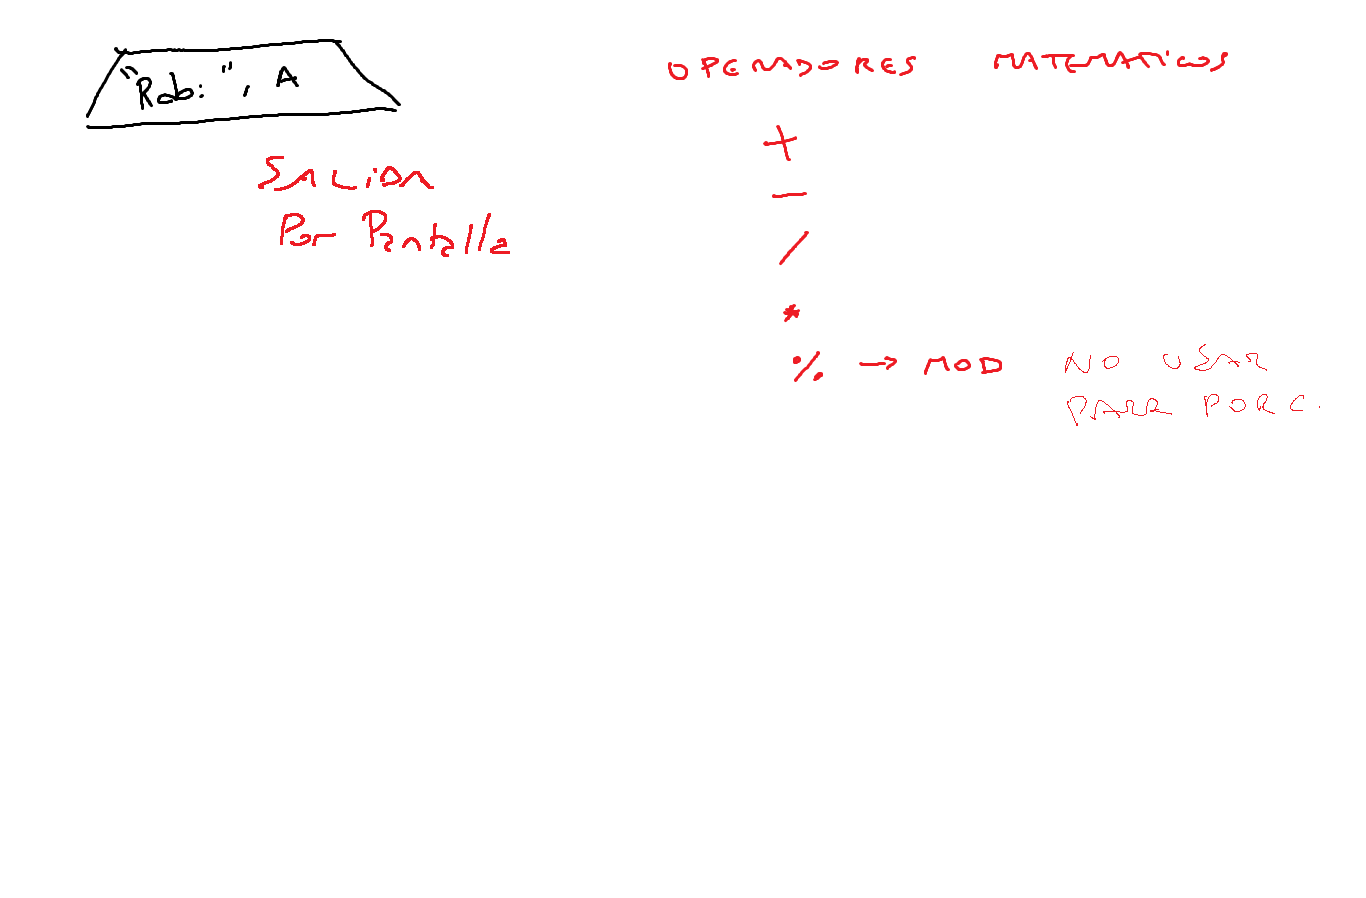 "Rab: ", A
SALIDA
Por Pantalla
OPERADORES MATEMATICOS
+
-
/
*
% → MOD NO USAR
PARA PORC.